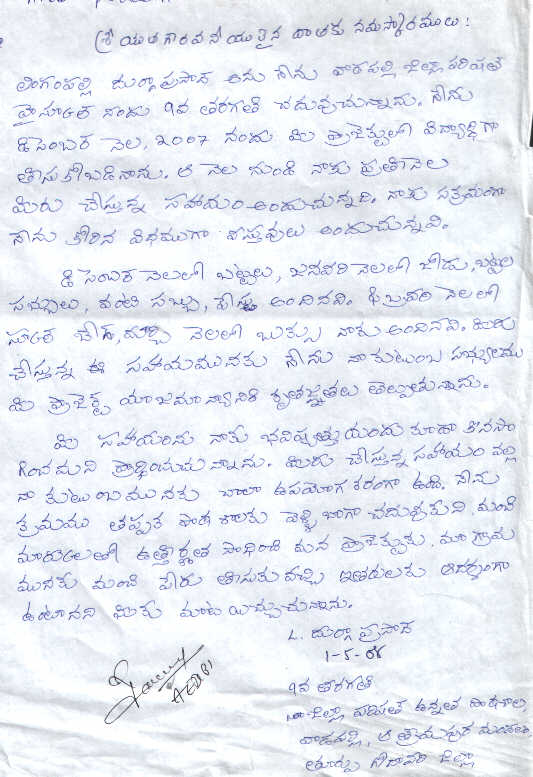 శ్రీయుత గౌరవనీయులైన దాతకు నమస్కారములు :
లింగంపల్లి దుర్గాప్రసాద్ అను నేను వాడపల్లి జిల్లా పరిషత్
హైస్కూల్ నందు 9వ తరగతి చదువుచున్నాను. నేను
డిసెంబర్ నెల, 2007 నందు మీ ప్రాజెక్టులో విద్యార్థిగా
తీసుకోబడినాను. ఆ నెల నుండి నాకు ప్రతినెల
మీరు చేస్తున్న సహాయం అందుచున్నది. నాకు సక్రమంగా
నేను కోరిన విధముగా వస్తువులు అందుచున్నవి.
డిసెంబర్ నెలలో బట్టలు, జనవరి నెలలో జోడు, బట్టల
సబ్బులు, వంటి సబ్బు, పేస్టు అందినవి. ఫిబ్రవరి నెలలో
స్కూల్ బ్యాగ్, మార్చి నెలలో బుక్స్ నాకు అందినవి. మీరు
చేస్తున్న ఈ సహాయమునకు నేను నా కుటుంబ సభ్యులము
మీ ప్రాజెక్ట్ యాజమాన్యానికి కృతజ్ఞతలు తెల్పుతున్నాను.
మీ సహాయంను నాకు భవిష్యత్తు యందు కూడా కొనసా
గించమని ప్రార్థించుచున్నాను. మీరు చేస్తున్న సహాయం వల్ల
నా కుటుంబమునకు చాలా ఉపయోగకరంగా ఉంది. నేను
క్రమము తప్పక పాఠశాలకు వెళ్ళి బాగా చదువుకుని, మంచి
మార్కులతో ఉత్తీర్ణత సాధించి మన ప్రాజెక్టుకు, మా గ్రామ
మునకు మంచి పేరు తీసుకువచ్చి ఇతరులకు ఆదర్శంగా
ఉంటానని మీకు మాట యిచ్చుచున్నాను.
L. దుర్గా ప్రసాద్
1-5-08
9వ తరగతి
జిల్లా పరిషత్ ఉన్నత పాఠశాల,
వాడపల్లి, ఆత్రేయపురం మండలం,
తూర్పు గోదావరి జిల్లా